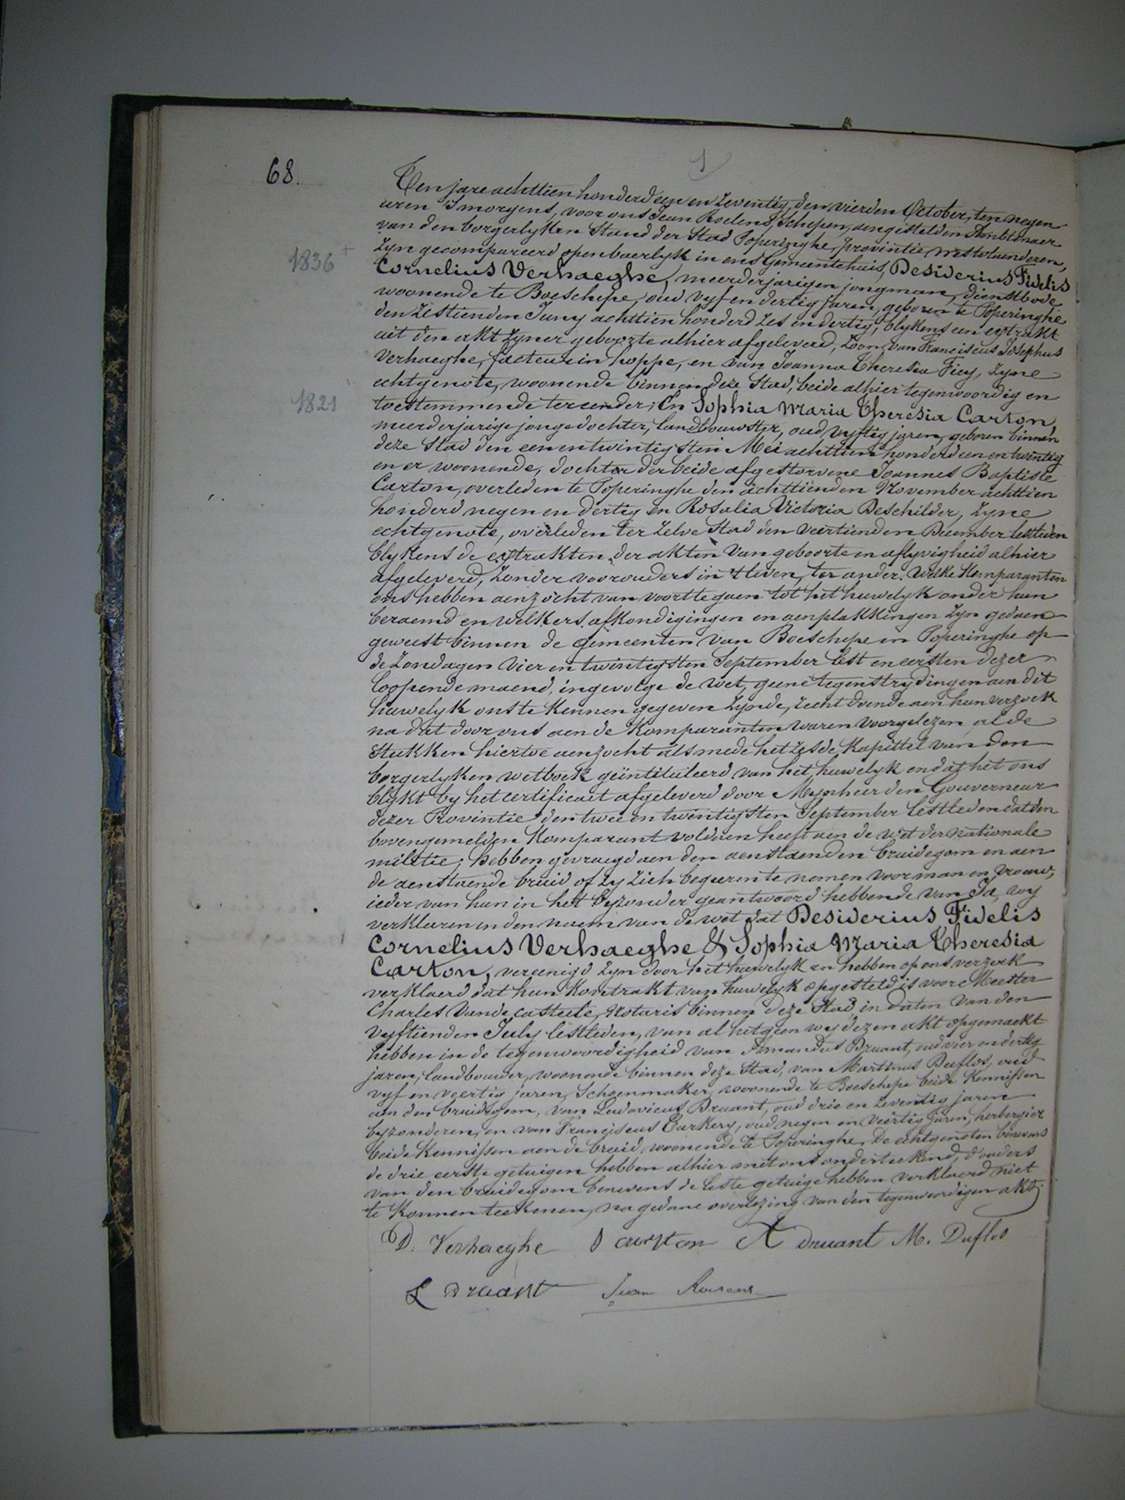 68.
1
Ten jare achttien honderd een en zeventig, den vierden October, ten negen
uren 's morgens, voor ons Jean Roelens, Schepen, aengestelden Ambtenaer
van den borgerlyken Stand der Stad Poperinghe, provintie westvlaenderen,
1836 +
zyn gecompareerd openbaerlyk in ons Gemeentehuis, Desiderius Fidelis
Cornelius Verhaeghe, meerderjarigen jongman, dienstbode
woonende te Boeschepe, oud vyf en dertig jaren, geboren te Poperinghe
den zestienden Juny achttien honderd zes en dertig, blykens een extrakt
uit den akt zyner geboorte alhier afgeleverd, zoon van Franciscus Josephus
Verhaeghe, facteur in hoppe, en van Joanna Theresia Ficy, zyne
echtgenote, woonende binnen deze Stad, beide alhier tegenwoordig en
1821
toestemmende ter eender; En Sophia Maria Theresia Carton,
meerderjarige jonge dochter, landbouwster, oud vyftig jaren, geboren binnen
deze stad den eenentwintigsten Mei achttien honderd een en twintig
en er woonende, dochter der beide afgestorvene Joannes Baptiste
Carton, overleden te Poperinghe den achttienden November achttien
honderd negen en dertig en Rosalia Victoria Deschilder, zyne
echtgenote, overleden ter zelve Stad den veertienden December lestleden
blykens de extrakten der akten van geboorte en aflyvigheid alhier
afgeleverd, zonder voorouders in 't leven, ter ander. Welke Komparanten
ons hebben aenzocht van voort te gaen tot het huwelyk onder hun
beraemd en welkers afkondigingen en aenplakkingen zyn gedaen
geweest binnen de gemeenten van Boeschepe en Poperinghe op
de zondagen vier en twintigsten September lest en eersten dezer
loopende maend, ingevolge de wet, geene tegenstrydingen aen dit
huwelyk ons te kennen gegeven zynde, recht doende aen hun verzoek
na dat door ons aen de Komparanten waren voorgelezen al de
Stukken hiertoe aenzocht alsmede het zesde Kapittel van den
borgerlyken wetboek geïntituleerd van het huwelyk en dat het ons
blykt by het certificaet afgeleverd door Mynheer den Gouverneur
dezer Provintie den twee en twintigsten September lestleden dat den
bovengemelden Komparant voldaen heeft aen de wet der nationale
militie; Hebben gevraegd aen den aenstaenden bruidegom en aen
de aenstaende bruid of zy zich begeeren te nemen voor man en vrouw,
ieder van hun in het byzonder geantwoord hebbende van Ja, wy
verklaren in den naem van de wet dat Desiderius Fidelis
Cornelius Verhaeghe & Sophia Maria Theresia
Carton, vereenigd zyn door het huwelyk en hebben op ons verzoek
verklaerd dat hun Kontrakt van huwelyk opgesteld is voor Meester
Charles Vande Casteele, Notaris binnen deze Stad in daten van den
vyftienden July lestleden, van al hetgeen wy dezen akt opgemaekt
hebben in de tegenwoordigheid van Amandus Druant, oud vier en dertig
jaren, landbouwer, woonende binnen deze Stad, van Martinus Duflos, oud
vyf en veertig jaren, Schoenmaker, woonende te Boeschepe beide Kennissen
aen den bruidegom, van Ludovicus Druant, oud drie en zeventig jaren
byzonderen, en van Franciscus oud negen en veertig jaren, herbergier
beide Kennissen aen de bruid, woonende te Poperinghe. De echtgenoten benevens
de drie eerste getuigen hebben alhier met ons onderteekend, d'ouders
van den bruidegom benevens de leste getuige hebben verklaerd niet
te konnen teekenen, na gedane overlezing van den tegenwoordigen akt.
D. Verhaeghe S carton A druant M. Duflos
L Druant Jean Roelens